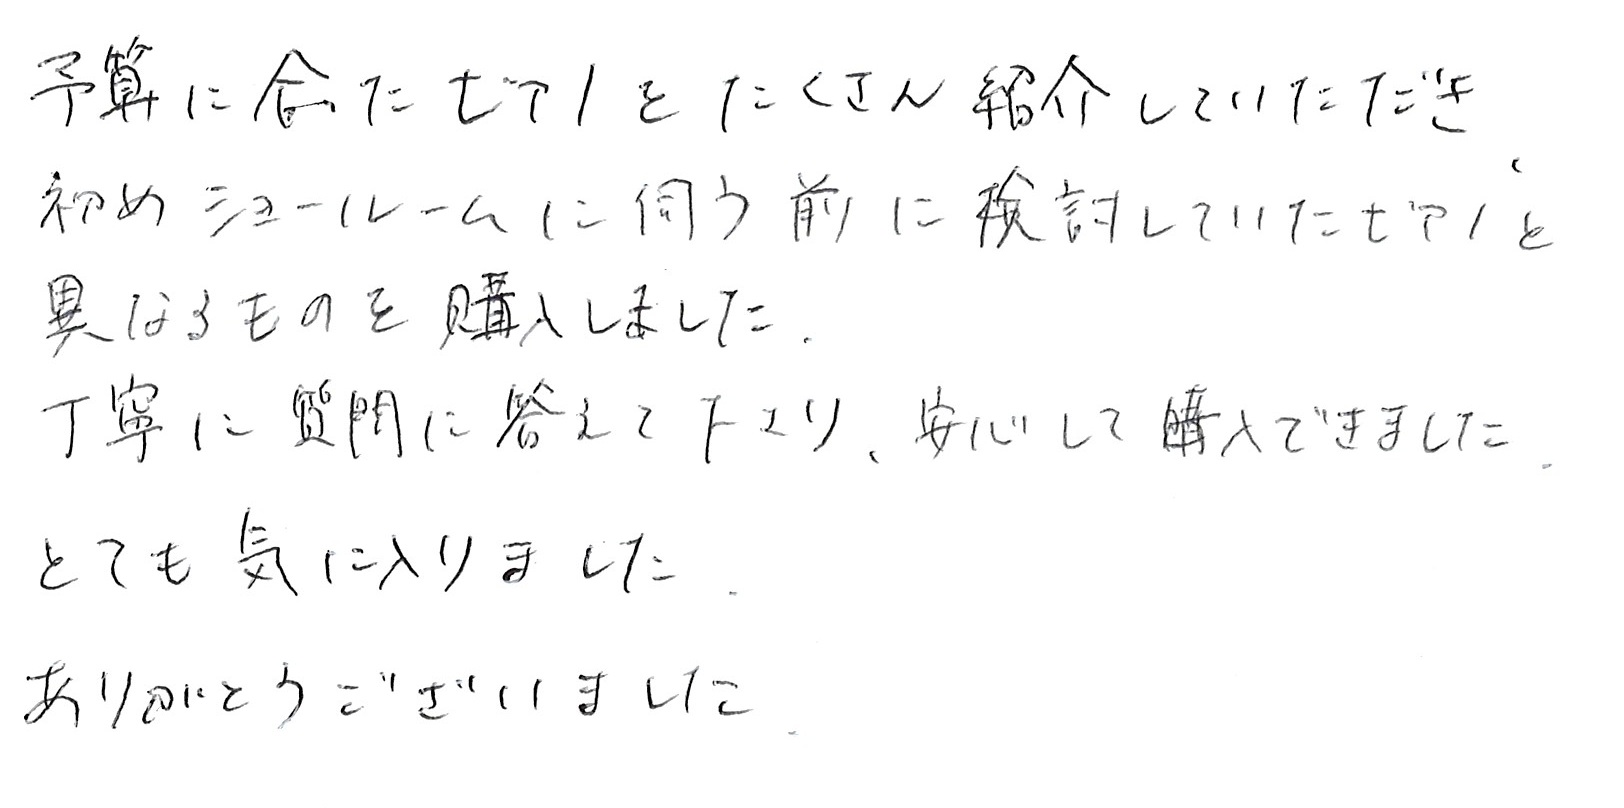 予算に合たピアノをたくさん紹介していただき、
初めショールームに伺う前に検討していたピアノと
異なるものを購入しました。
丁寧に質問に答えて下さり、安心して購入できました。
とても気に入りました。
ありがとうございました。